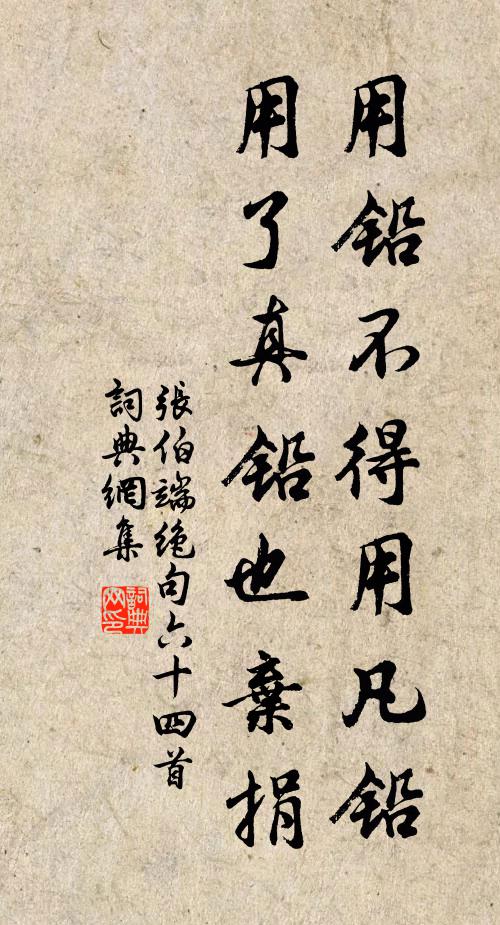 用鉛不得用凡鉛
用了真鉛也棄捐
張伯端絶句六十四首
詞典網集
詞典网印